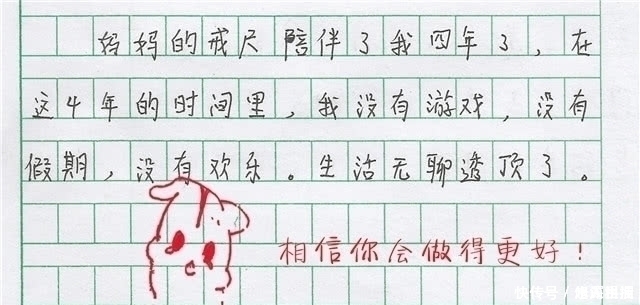 妈妈的戒尺陪伴了我四年了，在
这4年的时间里，我没有游戏，没有
假期，没有欢乐。生活无聊透顶了。
相信你会做得更好！
快传号/